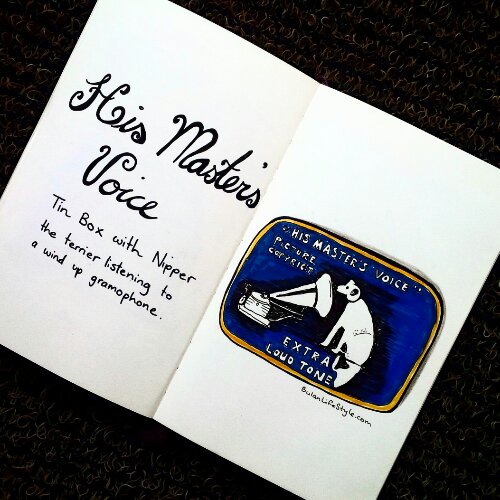 His Master's
Voice
Tin Box with Nipper
the terrier listening to
a wind up gramophone.
"HIS MASTER'S VOICE"
PICTURE
COPYRIGHT
EXTRA
LOUD TONE
BulanLifeStyle.com